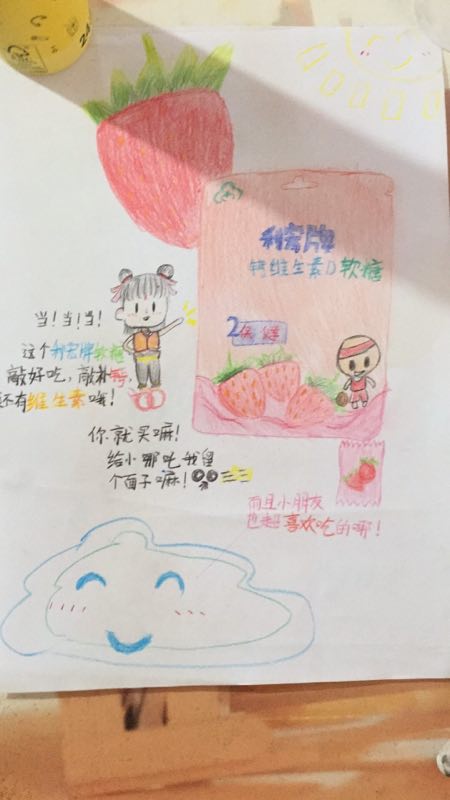 利宏牌
钙维生素D软糖
2保健
当！当！当！
这个利宏牌软糖
敲好吃，敲补钙，
还有维生素哦！
你就买嘛！
给小哪吒我留
个面子嘛！
而且小朋友
也超喜欢吃的哪！